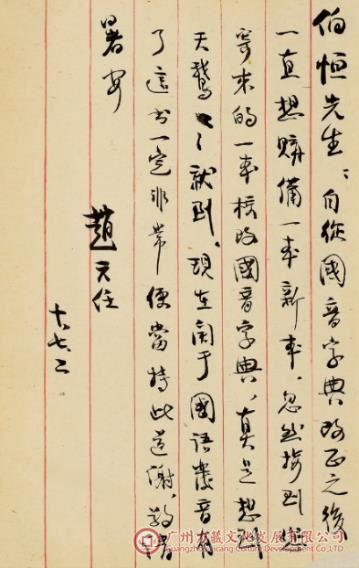 伯恒先生：自從國音字典改正之後
一直想購備一本新本，忽然接到您
寄來的一本校改國音字典，真是想到
天鵞々就到，現在關于國語發音有
了這書一定非常便當特此道謝，敬請
暑安
趙元任
十七，二
广州市藏文化发展有限公司
Guangzhoucang Culture Development Co.,Ltd